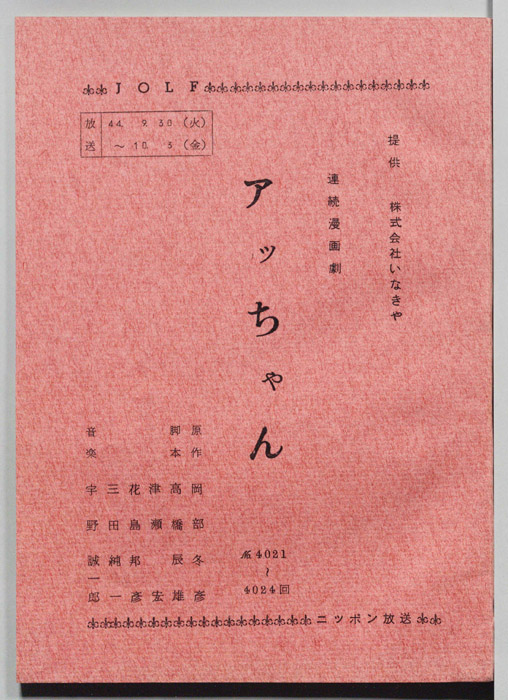 JOLF
放送 44. 9. 30(火)
～10. 3(金)
提供 株式会社いなきや
連続漫画劇
アッちゃん
№4021
～
4024回
原作 岡部冬彦
脚本 高橋辰雄
津瀬宏
花島邦彦
三田純一
音楽 宇野誠一郎
ニッポン放送